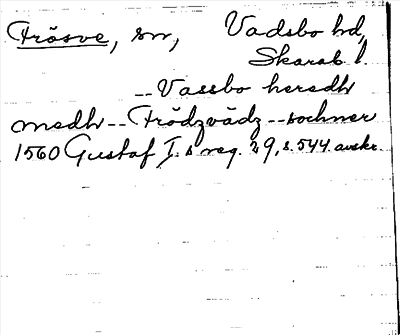 Fräsve, sn, Vadsbo hd,
Skarab. l.
-- Vassbo heredh
medh -- Frädzvädz -- sochner
1560 Gustaf I:s reg. 29, s. 544 avskr.